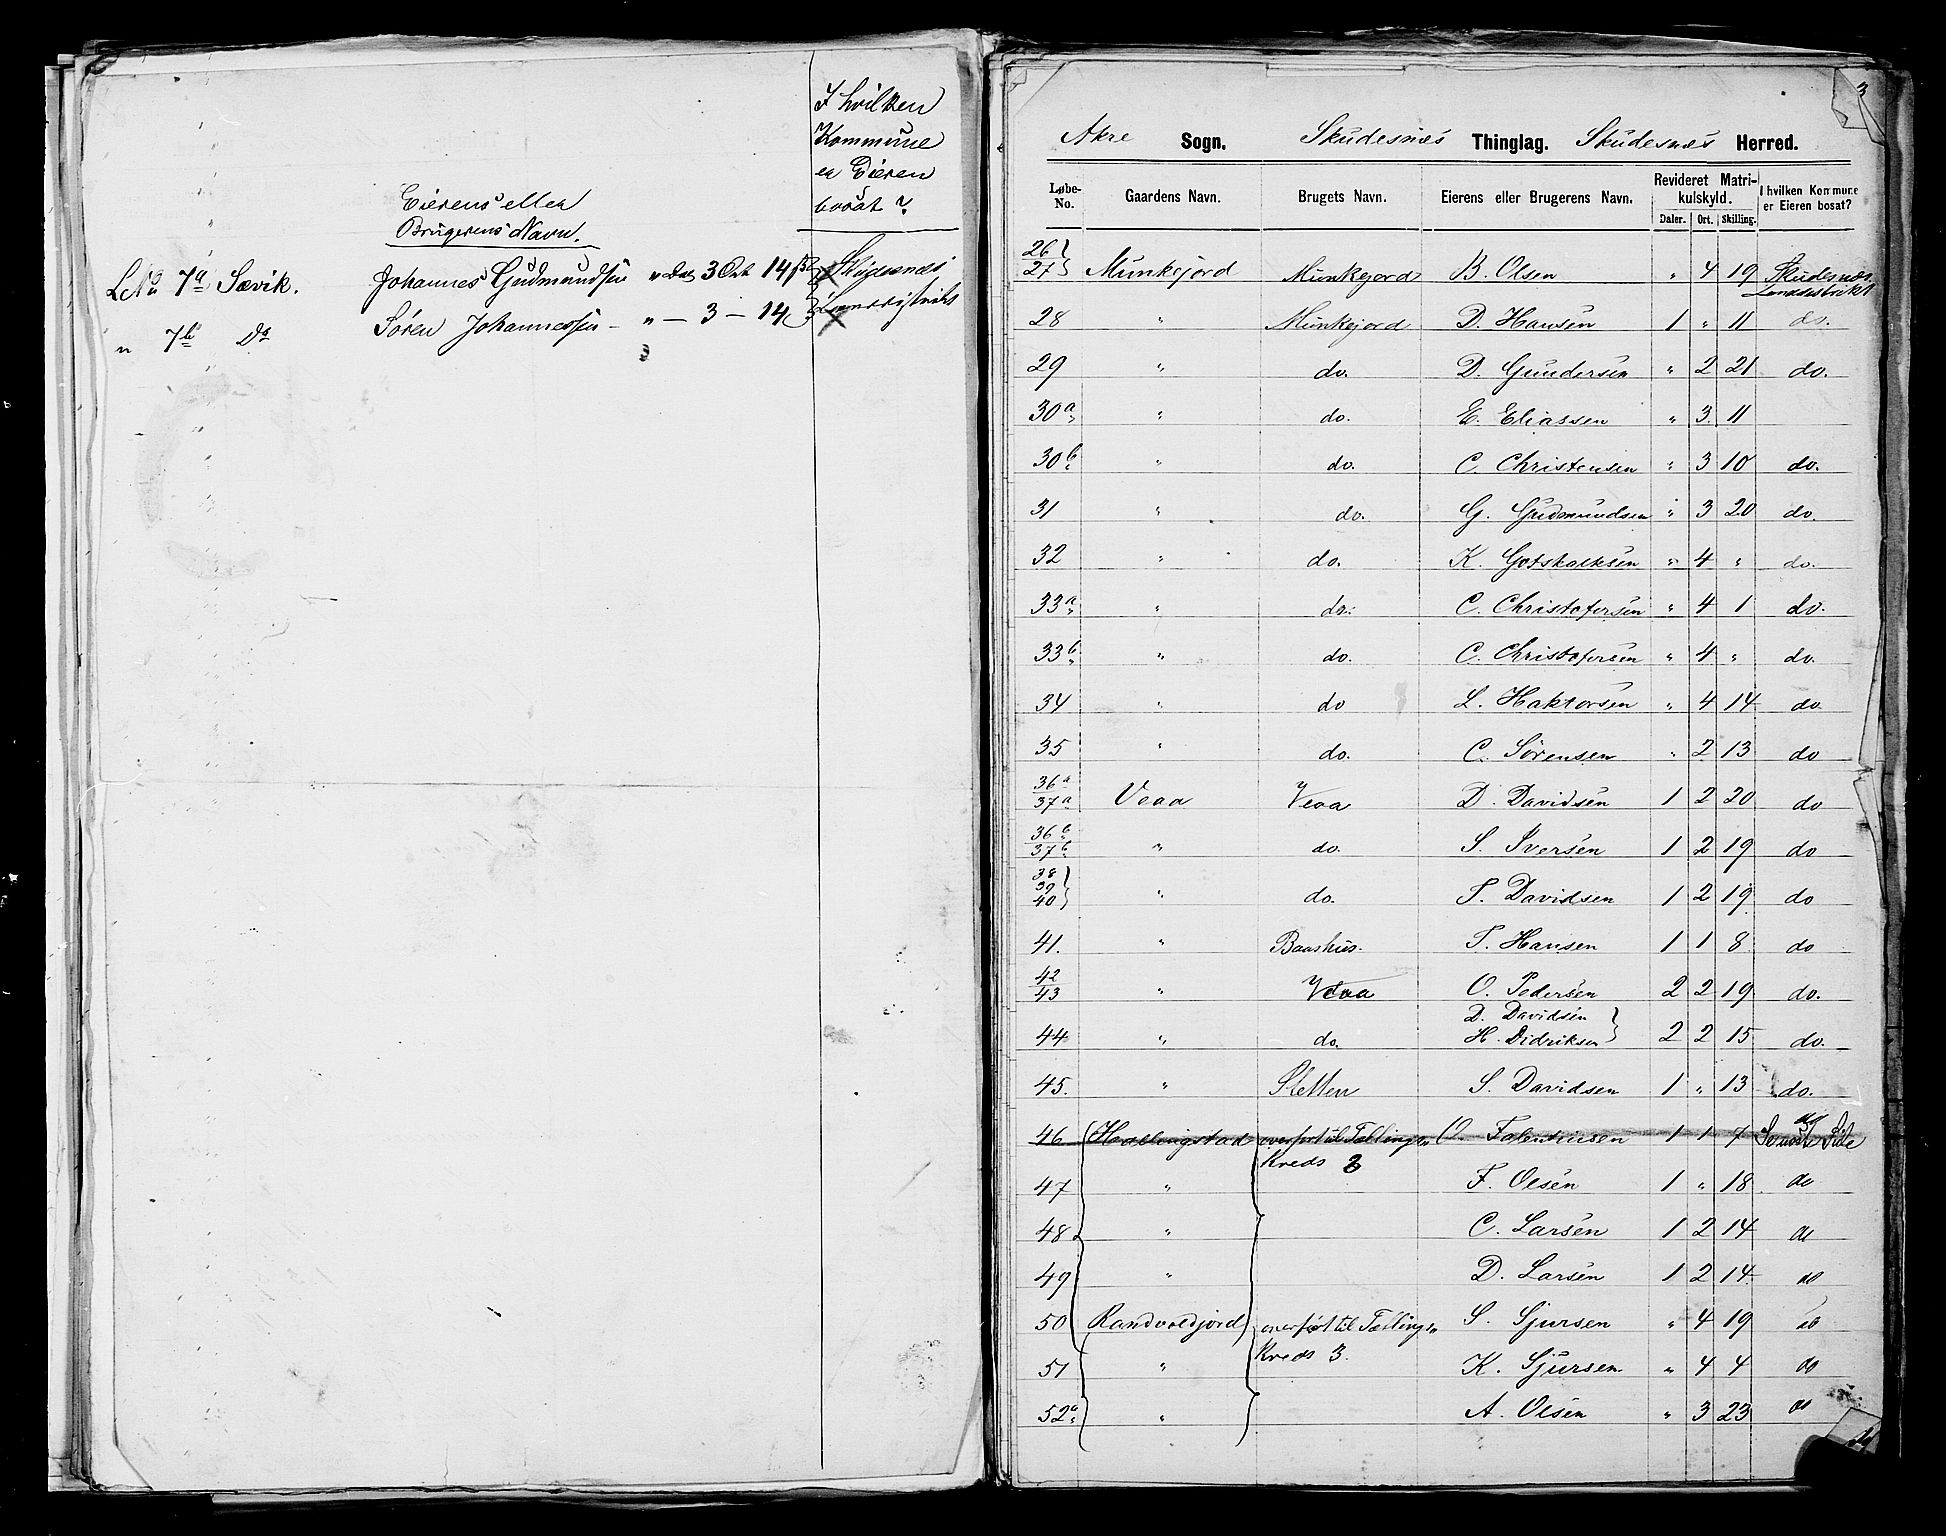 I hvilken
Kommune
er Eieren
bosat?
Eierens eller
Brugerens Navn.
LNo 7a Sævik. Johannes Gudmundsen " Dal 3 Ort 14 Sk
" 7b Do Søren Johannessen - " - 3 - 14
3
Akre Sogn. Skudesnæs Thinglag. Skudesnæs Herred.
Løbe-No. Gaardens Navn. Brugets Navn. Eierens eller Brugerens Navn. Revideret Matrikulskyld. Daler. Ort. Skilling. I hvilken Kommune er Eieren bosat?
26 27 } Munkejord Munkejord B. Olsen " 4 19 Skudesnæs Landdistrikt
28 " Munkejord D. Hansen 1 " 11 do.
29 " do. D. Gundersen " 2 21 do.
30a " do. E. Eliassen " 3 11
30b " do. C. Christensen " 3 10 do.
31 " do. G. Gudmundsen " 3 20 do.
32 " do. K. Gotskalksen " 4 " do.
33a " do. C. Christofersen " 4 1 do.
33b " do. C. Christofersen " 4 " do.
34 " do L. Haktorsen " 4 14 do
35 " do. C. Sørensen " 2 13 do
36a 37a Veaa Veaa D. Davidsen 1 2 20 do
36b 37b " do. S. Iversen 1 2 19 do
38 39 40 } " do. T. Davidsen 1 2 19 do
41. " Baashus. T. Hansen 1 1 8 do
42 43 " Veaa O. Pedersen 2 2 19 do.
44 " do. D. Davidsen H. Didriksen } 2 2 15 do.
45. " Sletten S. Davidsen 1 " 13 do.
46 Hallingstad overført til Tællings O. Falentinsen 1 1 7 do
Kreds 3
47 " F. Olsen 1 " 18 do
48 " C. Larsen 1 2 14 do
49 " D. Larsen 1 2 14 do
50 Randvoldjord overført til Tællings S. Sjursen " 4 19 do
Kreds 3.
51 " K. Sjursen " 4 4 do
52a " A. Olsen " 3 23 do